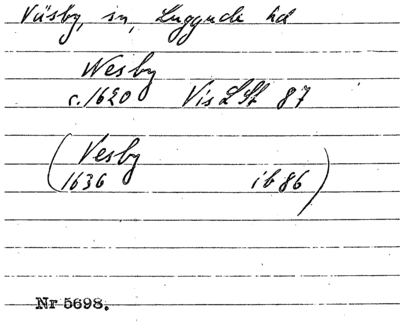 Väsby, sn, Luggude hd
Wesby
c. 1620 Vis LSt 87
(Vesby
1636 ib 86)
Nr 5698.